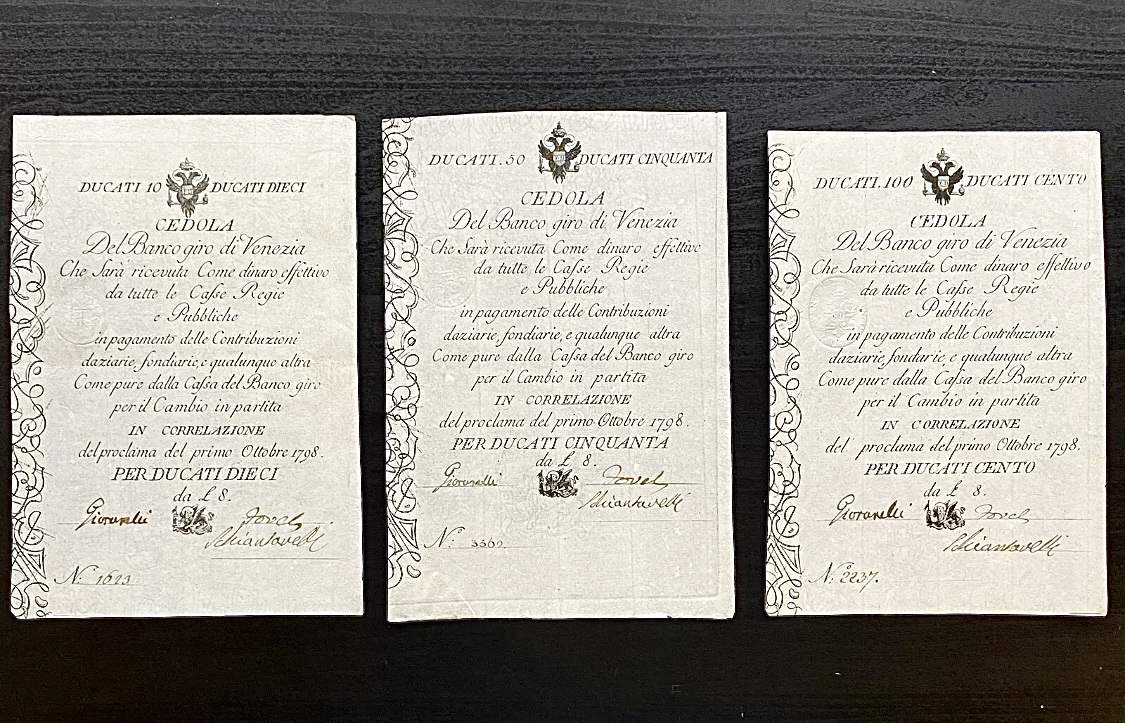 DUCATI 10 DUCATI DIECI
CEDOLA
Del Banco giro di Venezia
Che Sarà ricevuta Come dinaro effettivo
da tutte le Casse Regie
e Pubbliche
in pagamento delle Contribuzioni
daziarie, fondiarie, e qualunque altra
Come pure dalla Cassa del Banco giro
per il Cambio in partita
IN CORRELAZIONE
del proclama del primo Ottobre 1798.
PER DUCATI DIECI
da £ 8.
Giovanelli
N.º 1623
DUCATI. 50 DUCATI CINQUANTA
CEDOLA
Del Banco giro di Venezia
Che Sarà ricevuta Come dinaro effettivo
da tutte le Casse Regie
e Pubbliche
in pagamento delle Contribuzioni
daziarie, fondiarie, e qualunque altra
Come pure dalla Cassa del Banco giro
per il Cambio in partita
IN CORRELAZIONE
del proclama del primo Ottobre 1798.
PER DUCATI CINQUANTA
da £ 8.
Giovanelli
N.º
DUCATI. 100 DUCATI CENTO
CEDOLA
Del Banco giro di Venezia
Che Sarà ricevuta Come dinaro effettivo
da tutte le Casse Regie
e Pubbliche
in pagamento delle Contribuzioni
daziarie, fondarie, e qualunque altra
Come pure dalla Cassa del Banco giro
per il Cambio in partita
IN CORRELAZIONE
del proclama del primo Ottobre 1798.
PER DUCATI CENTO
da £ 8.
Giovanelli
N.º 2237.